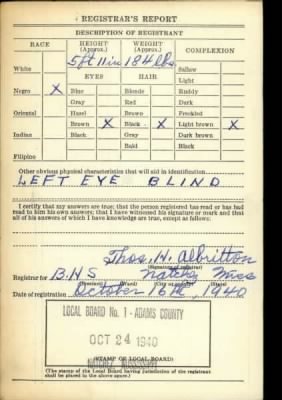 REGISTRAR'S REPORT
DESCRIPTION OF REGISTRANT
RACE HEIGHT (Approx.) WEIGHT (Approx.) COMPLEXION
5 ft 11 in 184 lbs.
White Sallow
EYES HAIR Light
Negro X Blue Blonde Ruddy
Gray Red Dark
Oriental Hazel Brown Freckled
Brown X Black X Light brown X
Indian Black Gray Dark brown
Bald Black
Filipino
Other obvious physical characteristics that will aid in identification
LEFT EYE BLIND
I certify that my answers are true; that the person registered has read or has
had read to him his own answers; that I have witnessed his signature or mark and that
all of his answers of which I have knowledge are true, except as follows:
Thos. H. Albritton
(Signature of registrar)
Registrar for B.H.S Natchez Miss
(Precinct) (Ward) (City or county) (State)
Date of registration October 16th, 1940
LOCAL BOARD No. 1 - ADAMS COUNTY
OCT 24 1940
(STAMP OF LOCAL BOARD)
NATCHEZ, MISSISSIPPI
(The stamp of the Local Board having jurisdiction of the registrant
shall be placed in the above space.)